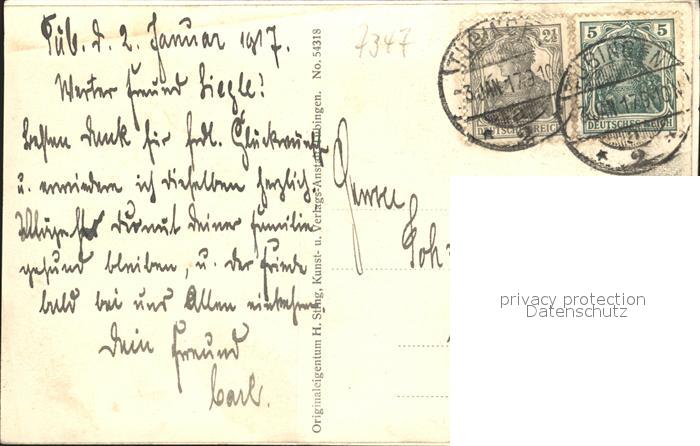 Tüb. d. 2. Januar 1917.
Werter Freund Siegle!
Besten Dank für frdl. Glückwünsche
u. erwiedere ich dieselben herzlich.
Mögest du mit deiner Familie
gesund bleiben, u. der Friede
bald bei uns Allen einkehren.
Dein Freund
Carl.
Originaleigentum H. Sting, Kunst- u. Verlags-Anstalt Tübingen. No. 54318
7347
TÜBINGEN
2½
DEUTSCHES REICH
TÜBINGEN
5 5
DEUTSCHES REICH
* 2 *
* 2 *
privacy protection
Datenschutz